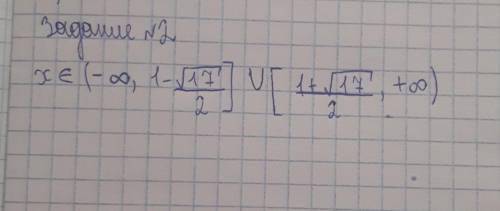 Задание №2
x ∈ (-∞, 1-√17/2] ∪ [1+√17/2, +∞)